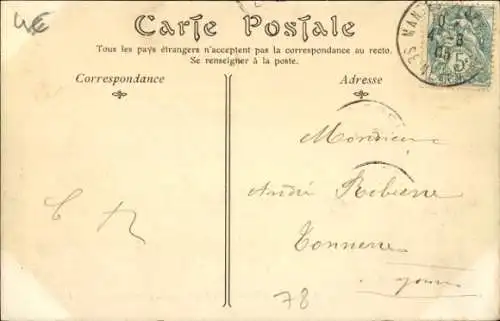 Carte Postale
Tous les pays étrangers n'acceptent pas la correspondance au recto.
Se renseigner à la poste.
Correspondance
Adresse
Monsieur
André
Tonnerre
Yonne
78